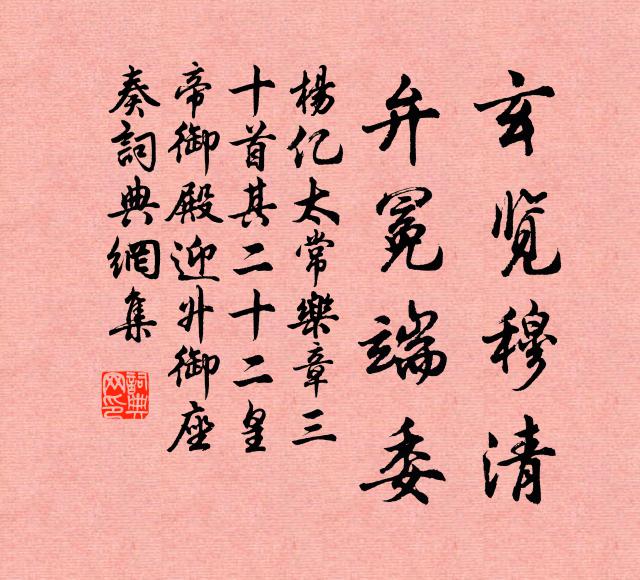 玄览穆清
弁冕端委
杨亿太常樂章三
十首其二十二皇
帝御殿迎升御座
奏詞典網集
詞典网印